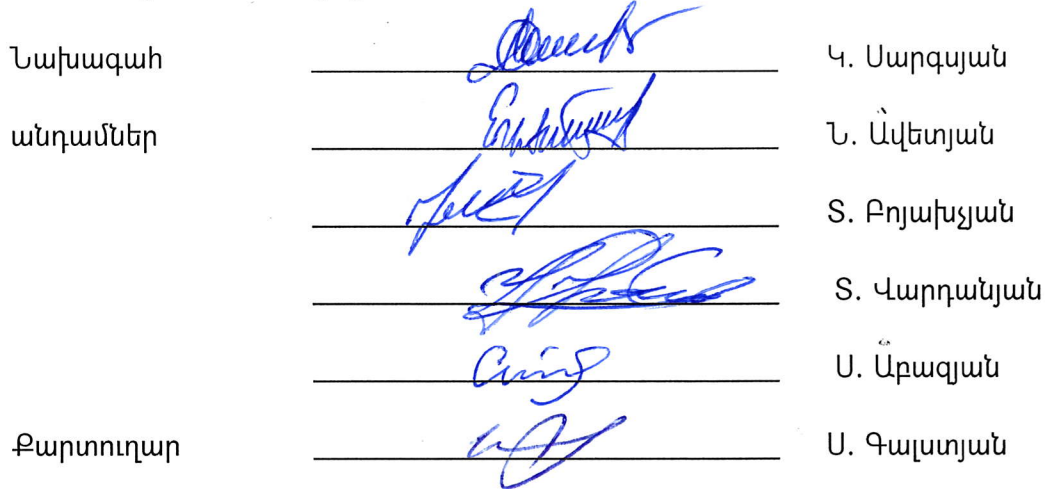 Նախագահ Կ. Սարգսյան
անդամներ Ն. Ավետյան
Տ. Բոյախչյան
Տ. Վարդանյան
Ս. Աբազյան
Քարտուղար Ս. Գալստյան